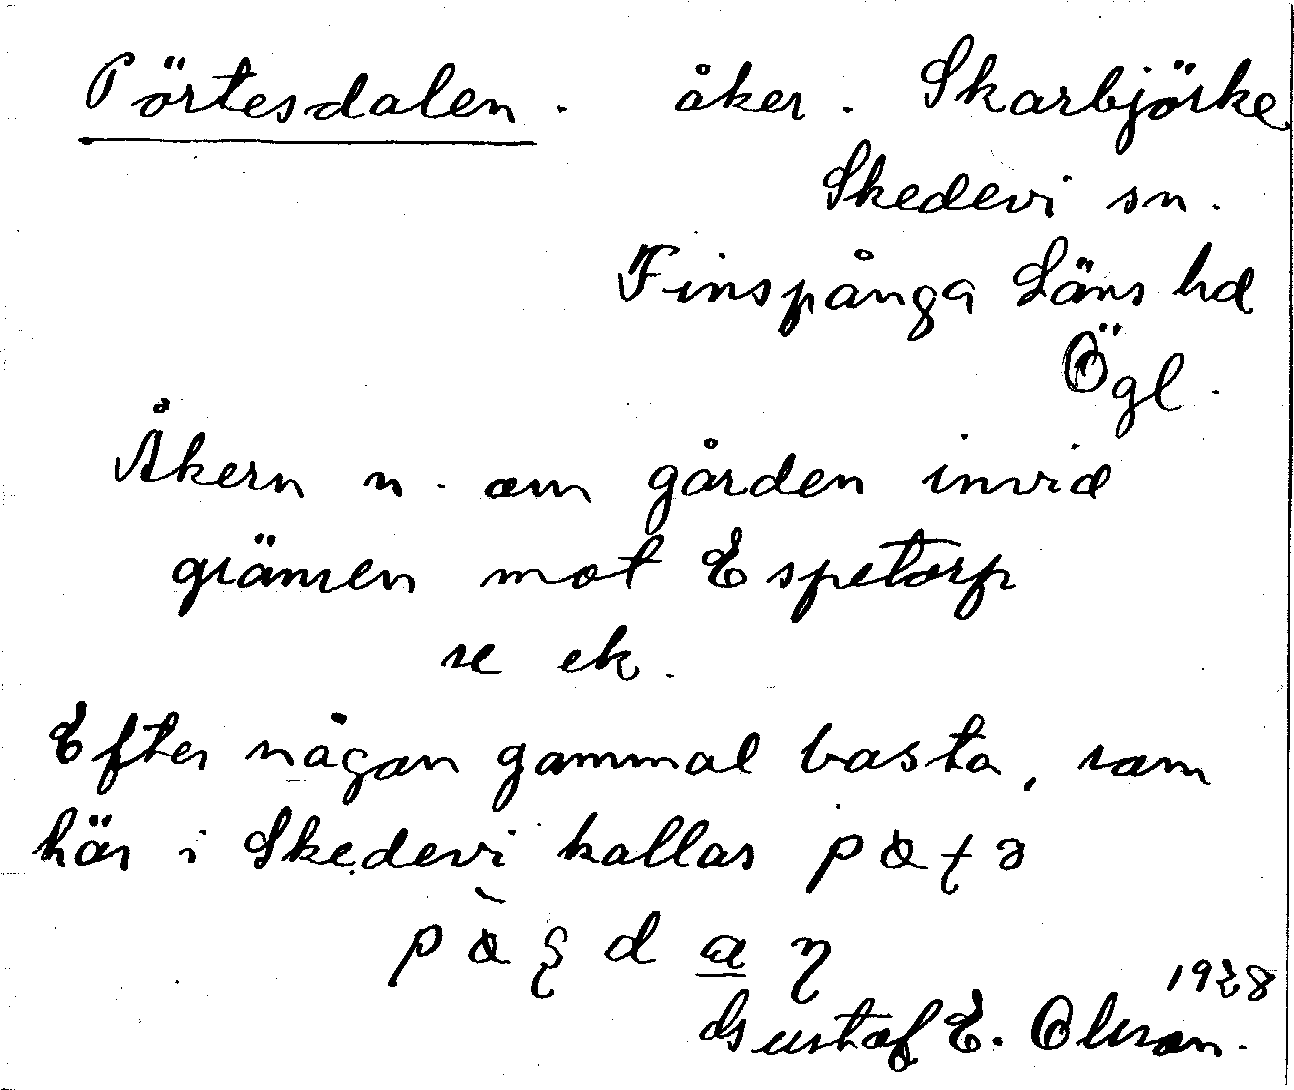 Pörtesdalen. åker. Skarbjörke
Skedevi sn.
Finspånga Läns hd
Ögl.
Åkern n. om gården invid
gränsen mot Espetorp
se ek.
Efter någon gammal basta, som
här i Skedevi kallas
1928
Gustaf E. Olsson.